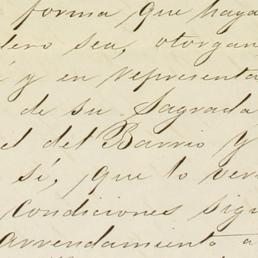 forma que haya
dero sea, otorgan
y en representa
de su Sagrada
el del Barrio y
sí, que lo ver
condiciones sigu
arrendamiento a